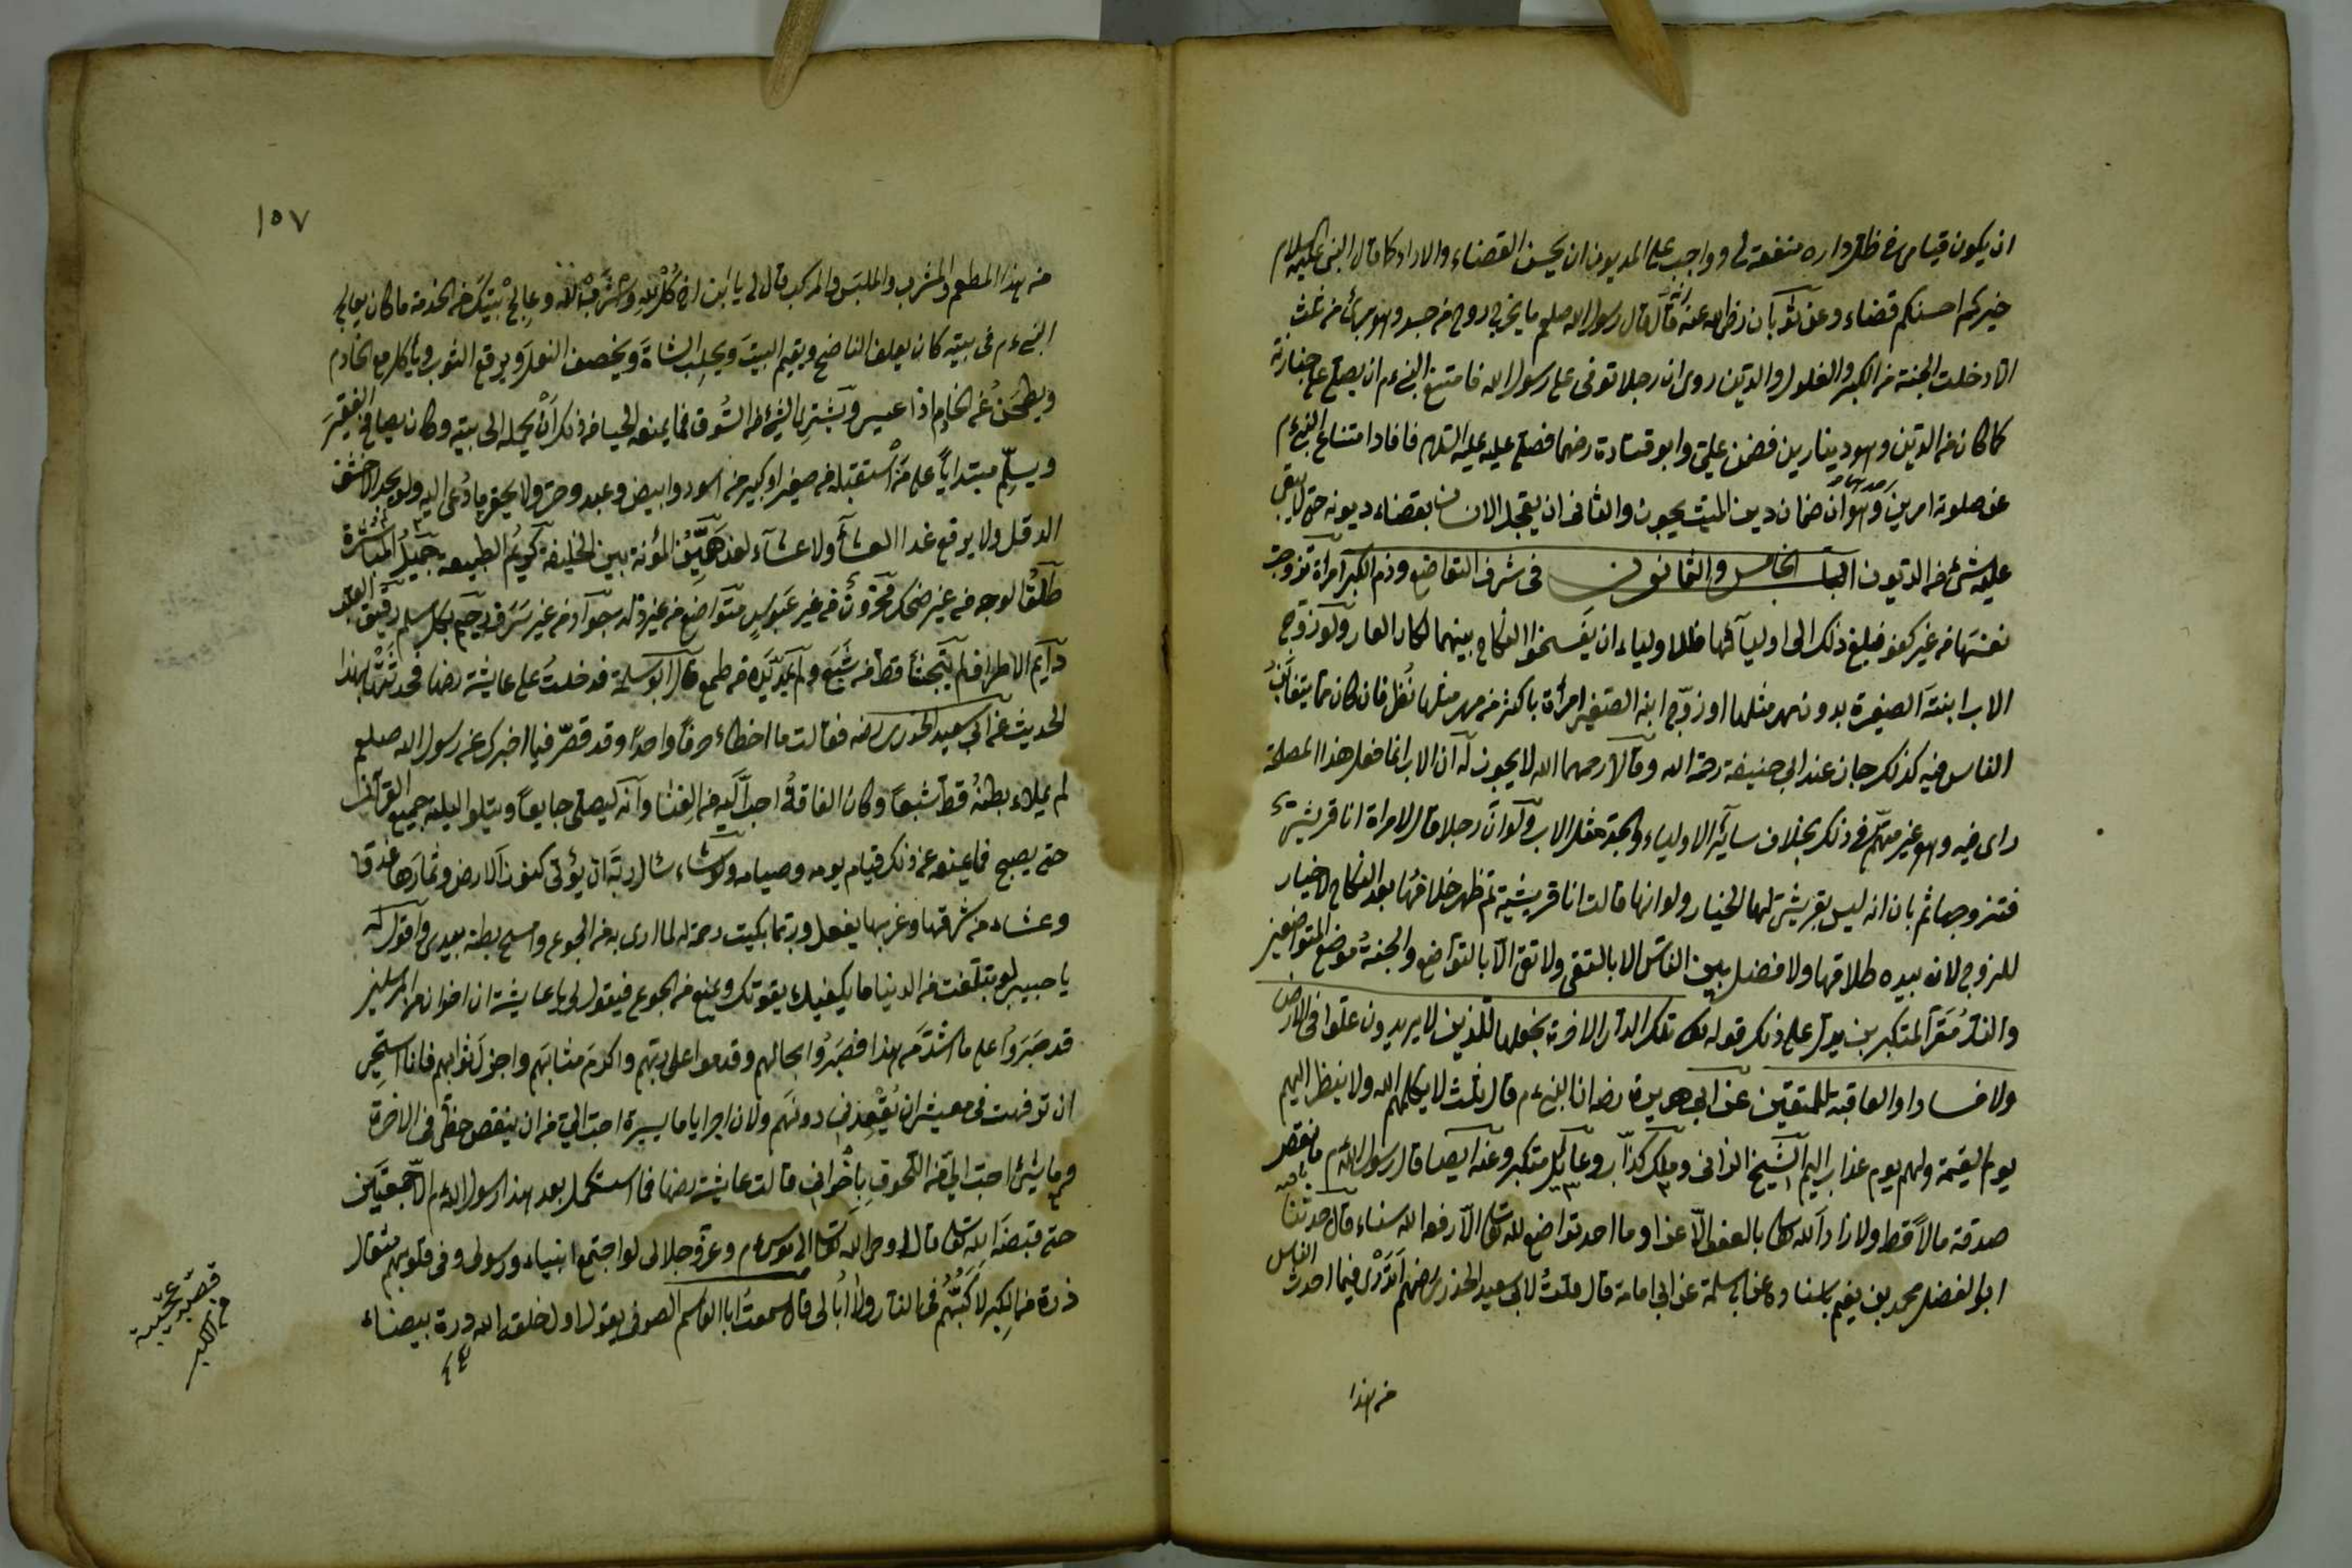 ان يكون قيامى فى ظل داره منفعة لى وواجب على المديون ان يحسن القضاء والاداء كما قال النبى عليه السلام
خيركم احسنكم قضاء وعن ثوبان رضى الله عنه انه قال قال رسول الله صلعم ما يخرج روح من جسد وهو برئ من ثلث
الا دخلت الجنة من الكبر والغلول والدين روى ان رجلا توفى على رسول الله فامتنع النبى ءم ان يصلى على جنازته
لما كان من الدين وهو دينارين فضمن على وابو قتادة رضهما فصلى عليه عليه السلام فافاد امتناع النبى ءم
عن صلوته امرين احدهما وهو ان ضمان دين الميت يجوز والثانى ان يعجل الانسان بقضاء ديونه حتى لا يبقى
عليه شئ من الديون الباب الخامس والثمانون فى شرف التواضع وذم الكبر امراة تزوجت
نفسها من غير كفو فبلغ ذلك الى اوليائها فللاولياء ان يفسخوا النكاح بينهما لمكان العار ولو زوج
الاب ابنته الصغيرة بدون مهر مثلها او زوج ابنه الصغير امرأة باكثر من مهر مثلها نُظر فان كان مما يتغابن
الناس فيه كذلك جاز عند ابى حنيفة رحمه الله وقالا رحمهما الله لا يجوز له ان الاب انما فعل هذا المصلحة
راى فيه وهو غير متهم فى ذلك بخلاف سائر الاولياء والجد مثل الاب ولو ان رجلا قال لامراة انا قريشى
فتزوجها ثم بان انه ليس بقريشى لها الخيار ولو انها قالت انا قريشية ثم ظهر خلافها بعد النكاح لا خيار
للزوج لانه بيده طلاقها ولا فضل بين الناس الا بالتقى ولا تقى الا بالتواضع والجنة موضع المتواضعين
والنار مقر المتكبرين يدل على ذلك قوله تعالى تلك الدار الاخرة نجعلها للذين لا يريدون علوا فى الارض
ولا فسادا والعاقبة للمتقين عن ابى هريرة رضه ان النبى ءم قال ثلث لا يكلمهم الله ولا ينظر اليهم
يوم القيمة ولهم يوم عذاب اليم الشيخ الزانى وملك كذاب وعائل متكبر وعنه ايضا قال رسول الله ءم ما نقص
صدقة مالا قط ولا زاد الله تعالى بالعفو الا عزا وما احد تواضع لله تعالى الا رفعه الله سناء قال حدثنا
ابو الفضل محمد بن نعيم باسناده عن ابى سلمة عن ابى امامة قال قلت لابى سعيد الخدرى رضهم اترى فيما احدث الناس
من هذا
١٥٧
من هذا المطعم والمشرب والملبس والمركب قال لى يا ابن اخى كُل لله واشرب لله وعالج بيتك من الخدمة ما كان يعالج
النبى ءم فى بيته كان يعلف الناضح ويقيم البيت ويحلب الشاة ويخصف النعل ويرقع الثوب ويأكل مع الخادم
ويطحن عن الخادم اذا عيى ويشترى الشئ من السوق فما يمنعه الحياء من ذلك ان يحمله الى بيته وكان يصافح الفقير
ويسلم مبتدأ على من استقبله من صغير او كبير من اسود وابيض وعبد وحر ولا يحقر ما دُعى اليه ولو يجد الا حشف
الدقل ولا يرفع غدا العشاء ولا عشاء لغد هين المؤنة بين الخليفة كريم الطبيعة جميل المعاشرة
طلق الوجه من غير ضحك محزون من غير عبوس متواضع من غير ذلة جواد من غير سرف رحيم بكل مسلم رقيق القلب
دايم الاطراق لم يتجشأ قط من شبع ولم يمد يده من طمع قال ابو سلمة فدخلت على عايشة رضها فحدثتها بهذا
الحديث عن ابى سعيد الخدرى رضه فقالت ما اخطاء حرفا واحدا وقد قصر فيما اخبرك عن رسول الله صلعم
لم يملاء بطنه قط شبعا وكان الفاقة احب اليه من الغنا وانه ليصلى جايعا ويتلو اليلة جميع القرآن
حتى يصبح فما يمنعه عن ذلك قيام يومه وصيامه ولو شاء سئال ربه ان يؤتى كنوز الارض وثمارها غدقا
وعشاء من شرقها وغربها يفعل وربما بكيت رحمة له لما ارى به من الجوع وامسح بطنه بيدى واقول له
يا حبيبى لو تبلغت من الدنيا ما يكفيك يقوتك ويمنع من الجوع فيقول لى يا عايشة ان اخوان من المرسلين
قد صبروا على ما اشد من هذا فصبروا بحالهم وقدموا على ربهم واكرم مثابهم واجزل ثوابهم فانا استحى
ان ترفهت فى معيشتى ان يُقعدنى دونهم ولان اجر اياما يسيرة احب الى من ان ينقص حظى فى الاخرة
وما شئ احب الى من اللحوق باخوانى قالت عايشة رضها فما استكمل بعد هذا رسول الله ءم الا جمعتين
حتى قبضه الله تعالى قال اوحى الله تعالى الى موسى ءم وعزى وجلالى لو اجتمع انبياء ورسولى وفى قلوبهم مثقال
ذرة من الكبر لاكبتهم فى النار ولا أبالى قال سمعت ابا القاسم الصوفى يقول اول خلقه الله درة بيضاء
قصة عجيبة
فى الكبر